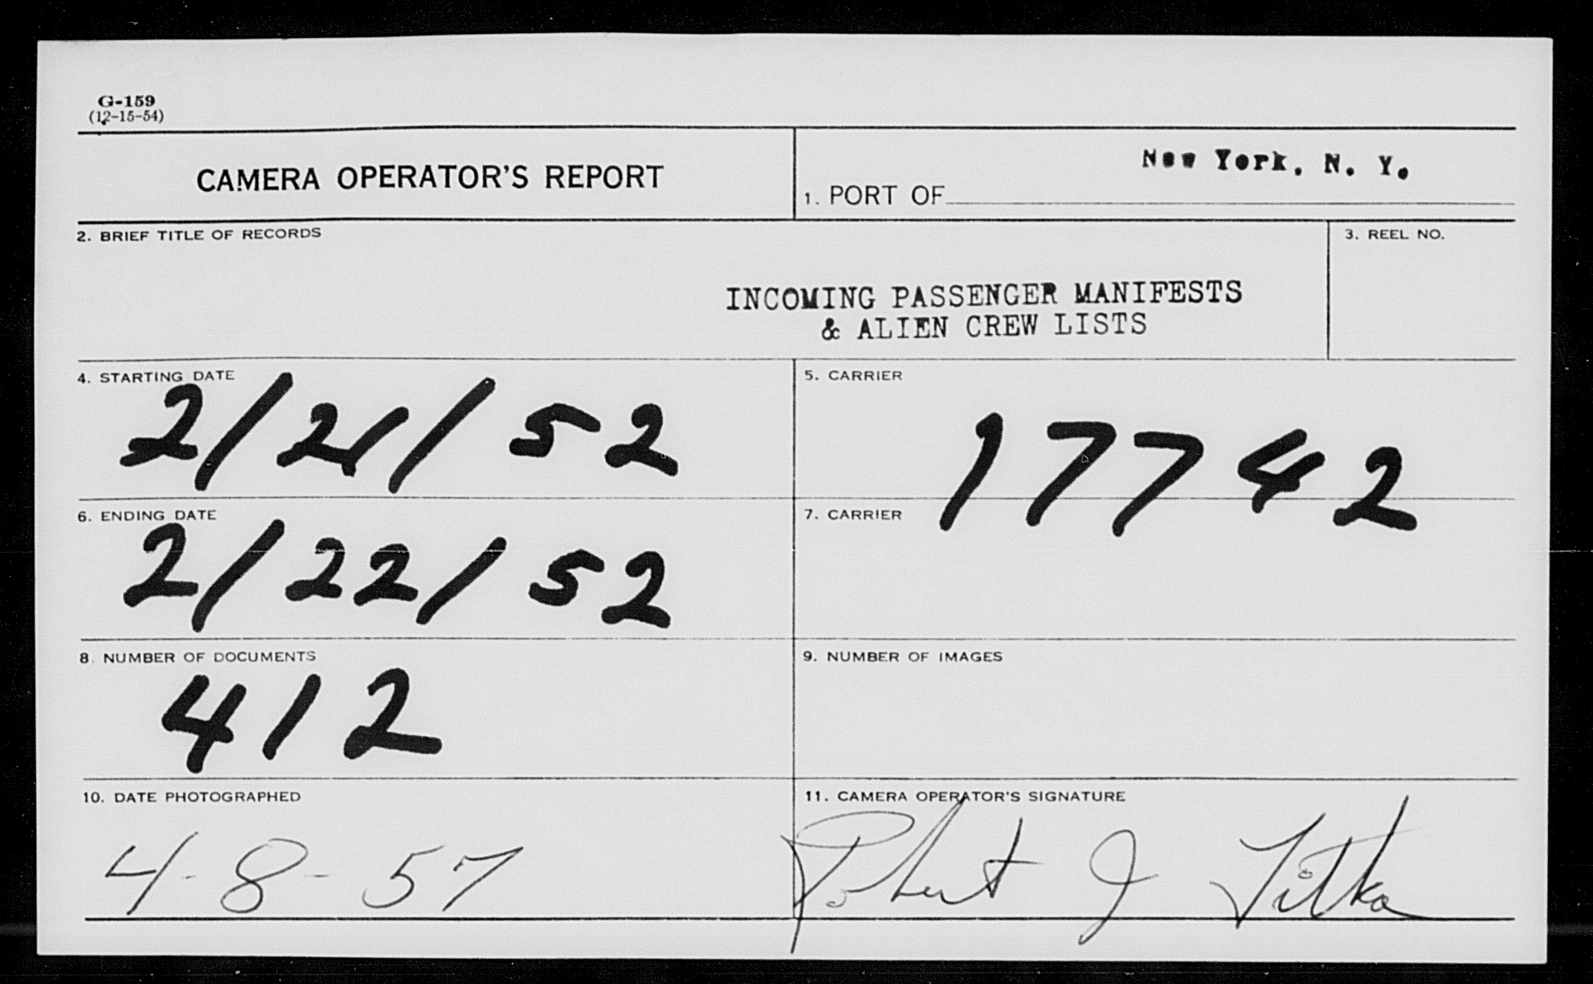 G-159
(12-15-54)
CAMERA OPERATOR'S REPORT
1. PORT OF New York, N. Y.
2. BRIEF TITLE OF RECORDS
3. REEL NO.
INCOMING PASSENGER MANIFESTS
& ALIEN CREW LISTS
4. STARTING DATE
2/21/52
5. CARRIER
17742
6. ENDING DATE
2/22/52
7. CARRIER
8. NUMBER OF DOCUMENTS
412
9. NUMBER OF IMAGES
10. DATE PHOTOGRAPHED
4-8-57
11. CAMERA OPERATOR'S SIGNATURE
Robert J